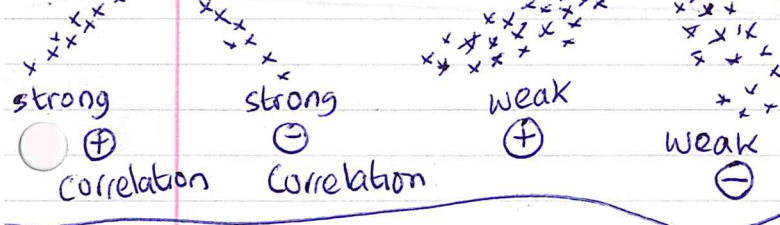 strong
⊕
correlation
strong
⊖
Correlation
weak
⊕
weak
⊖